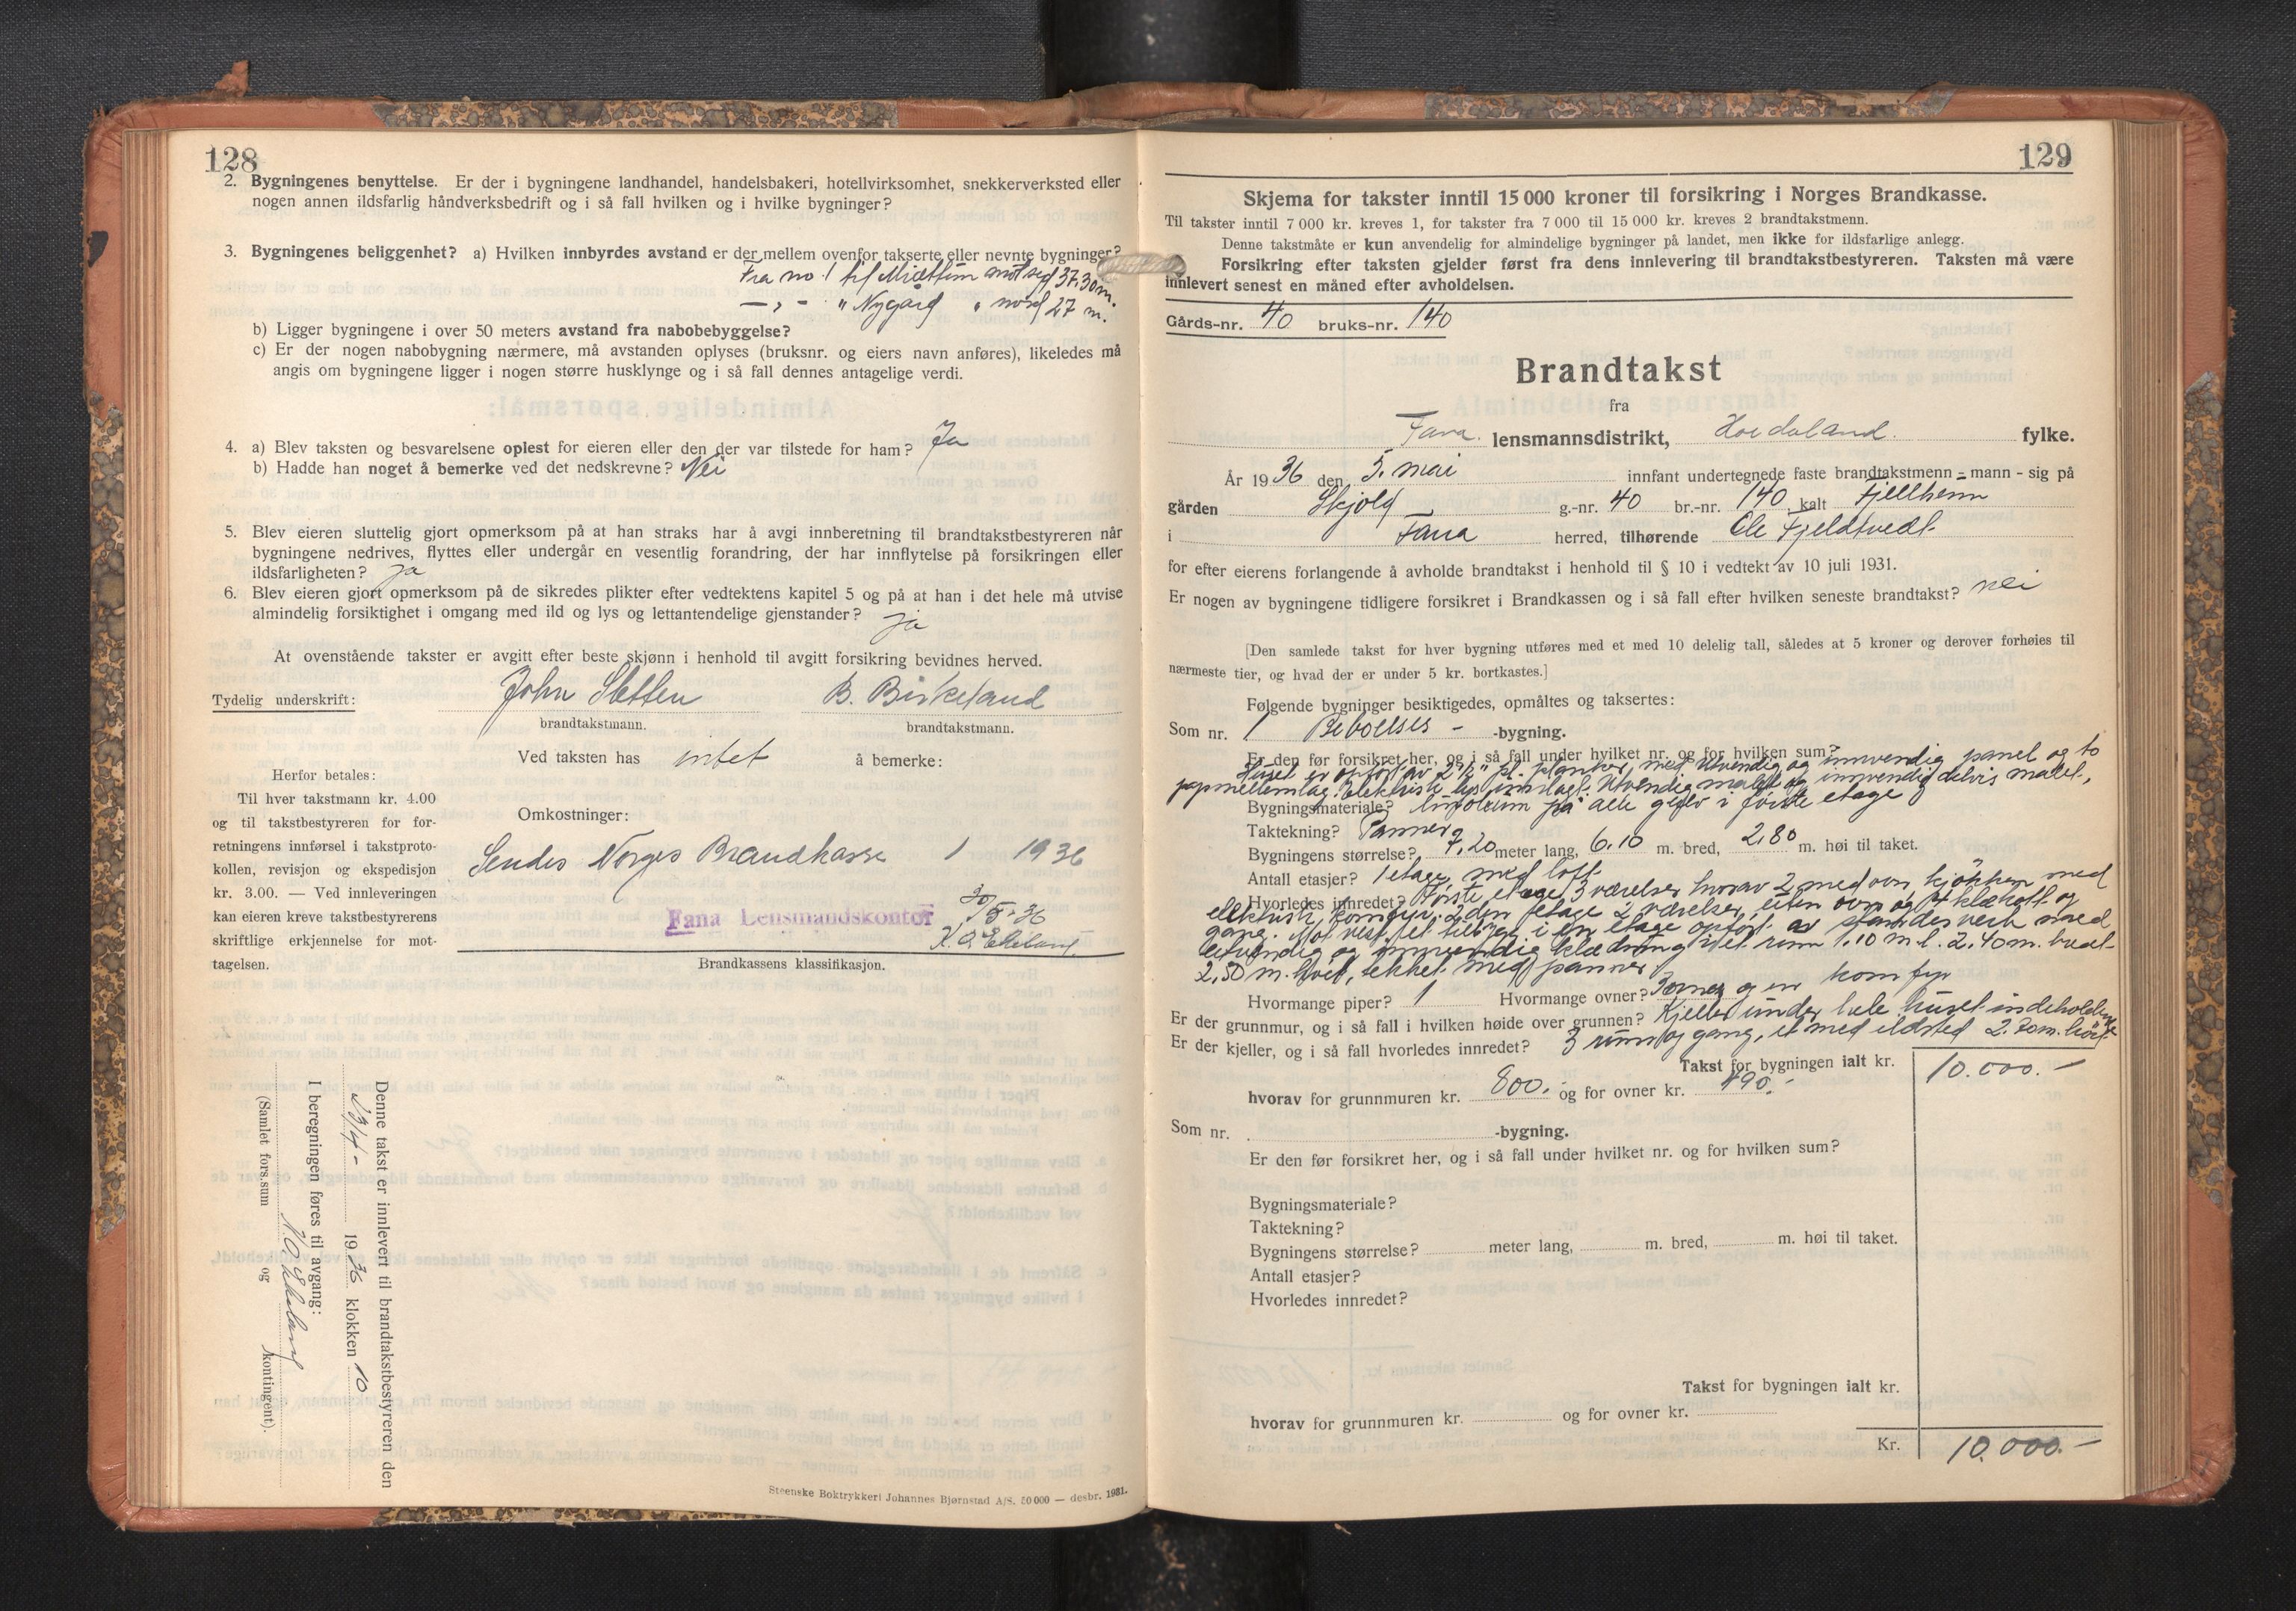 128
2. Bygningenes benyttelse. Er der i bygningene landhandel, handelsbakeri, hotellvirksomhet, snekkerverksted eller
nogen annen ildsfarlig håndverksbedrift og i så fall hvilken og i hvilke bygninger?
3. Bygningenes beliggenhet? a) Hvilken innbyrdes avstand er der mellem ovenfor takserte eller nevnte bygninger?
Fra no 1 til mot syd 37,30 m.
— " — " Nygard " nord 27 m.
b) Ligger bygningene i over 50 meters avstand fra nabobebyggelse?
c) Er der nogen nabobygning nærmere, må avstanden oplyses (bruksnr. og eiers navn anføres), likeledes må
angis om bygningene ligger i nogen større husklynge og i så fall dennes antagelige verdi.
4. a) Blev taksten og besvarelsene oplest for eieren eller den der var tilstede for ham? Ja
b) Hadde han noget å bemerke ved det nedskrevne? Nei
5. Blev eieren sluttelig gjort opmerksom på at han straks har å avgi innberetning til brandtakstbestyreren når
bygningene nedrives, flyttes eller undergår en vesentlig forandring, der har innflytelse på forsikringen eller
ildsfarligheten? Ja
6. Blev eieren gjort opmerksom på de sikredes plikter efter vedtektens kapitel 5 og på at han i det hele må utvise
almindelig forsiktighet i omgang med ild og lys og lettantendelige gjenstander? ja
At ovenstående takster er avgitt efter beste skjønn i henhold til avgitt forsikring bevidnes herved.
Tydelig underskrift: John Sletten B. Birkeland
brandtakstmann. brandtakstmann.
Ved taksten has intet å bemerke:
Herfor betales:
Til hver takstmann kr. 4.00
og til takstbestyreren for for-
retningens innførsel i takstproto-
kollen, revisjon og ekspedisjon
kr. 3.00. — Ved innleveringen
kan eieren kreve takstbestyrerens
skriftlige erkjennelse for mot-
tagelsen.
Omkostninger:
Sendes Norges Brandkasse 1 1936
20/5-36
Fana Lensmandskontor
Brandkassens klassifikasjon.
Denne takst er innlevert til brandtakstbestyreren den
1936 klokken 10
I beregningen føres til avgang:
(Samlet fors.sum og kontingent).
Steenske Boktrykkeri Johannes Bjørnstad A/S. 50 000 — desbr. 1931.
129
Skjema for takster inntil 15 000 kroner til forsikring i Norges Brandkasse.
Til takster inntil 7 000 kr. kreves 1, for takster fra 7 000 til 15 000 kr. kreves 2 brandtakstmenn.
Denne takstmåte er kun anvendelig for almindelige bygninger på landet, men ikke for ildsfarlige anlegg.
Forsikring efter taksten gjelder først fra dens innlevering til brandtakstbestyreren. Taksten må være
innlevert senest en måned efter avholdelsen.
Gårds-nr. 40 bruks-nr. 140
Brandtakst
fra
Fana lensmannsdistrikt, Hordaland fylke.
År 1936 den 5. mai innfant undertegnede faste brandtakstmenn - mann - sig på
gården Skjold g.-nr. 40 br.-nr. 140 kalt Fjellheim
i Fana herred, tilhørende Ole Fjeldtvedt
for efter eierens forlangende å avholde brandtakst i henhold til § 10 i vedtekt av 10 juli 1931.
Er nogen av bygningene tidligere forsikret i Brandkassen og i så fall efter hvilken seneste brandtakst? nei
[Den samlede takst for hver bygning utføres med et med 10 delelig tall, således at 5 kroner og derover forhøies til
nærmeste tier, og hvad der er under 5 kr. bortkastes.]
Følgende bygninger besiktigedes, opmåltes og taksertes:
Som nr. 1 Beboelses - -bygning.
Er den før forsikret her, og i så fall under hvilket nr. og for hvilken sum?
Huset er opført av 2½" pl. planker, med utvendig og innvendig panel og to
papmellemlag. Elektriske lys innlagt. Utvendig malet og innvendig delvis malet,
Bygningsmateriale? linoleum på alle gulv i første etage
Taktekning? Panner
Bygningens størrelse? 7,20 meter lang, 6.10 m. bred, 2,80 m. høi til taket.
Antall etasjer? 1 etage med loft
Hvorledes innredet? Første etage 3 værelser hvorav 2 med ovn kjøkken med
elektrisk komfyr. 2den etage 2 værelser, uten ovn og 4 klækott og
gang. Mot vest et tilbygg i en etage opført av stenderverk med
utvendig og innvendig klædning i et rum 1.10 m l. 2,40 m. bredt
2,50 m. høit, tekket med panner
Hvormange piper? 1 Hvormange ovner? 3 ovner og en komfyr
Er der grunnmur, og i så fall i hvilken høide over grunnen? Kjeller under hele huset indeholdende
Er der kjeller, og i så fall hvorledes innredet? 3 rum og gang, et med ildsted 2.20 m. høit
Takst for bygningen ialt kr. 10.000.-
hvorav for grunnmuren kr. 800.- og for ovner kr. 490.-
Som nr. -bygning.
Er den før forsikret her, og i så fall under hvilket nr. og for hvilken sum?
Bygningsmateriale?
Taktekning?
Bygningens størrelse? meter lang, m. bred, m. høi til taket.
Antall etasjer?
Hvorledes innredet?
Takst for bygningen ialt kr.
hvorav for grunnmuren kr. og for ovner kr.
Kr. 10.000.-